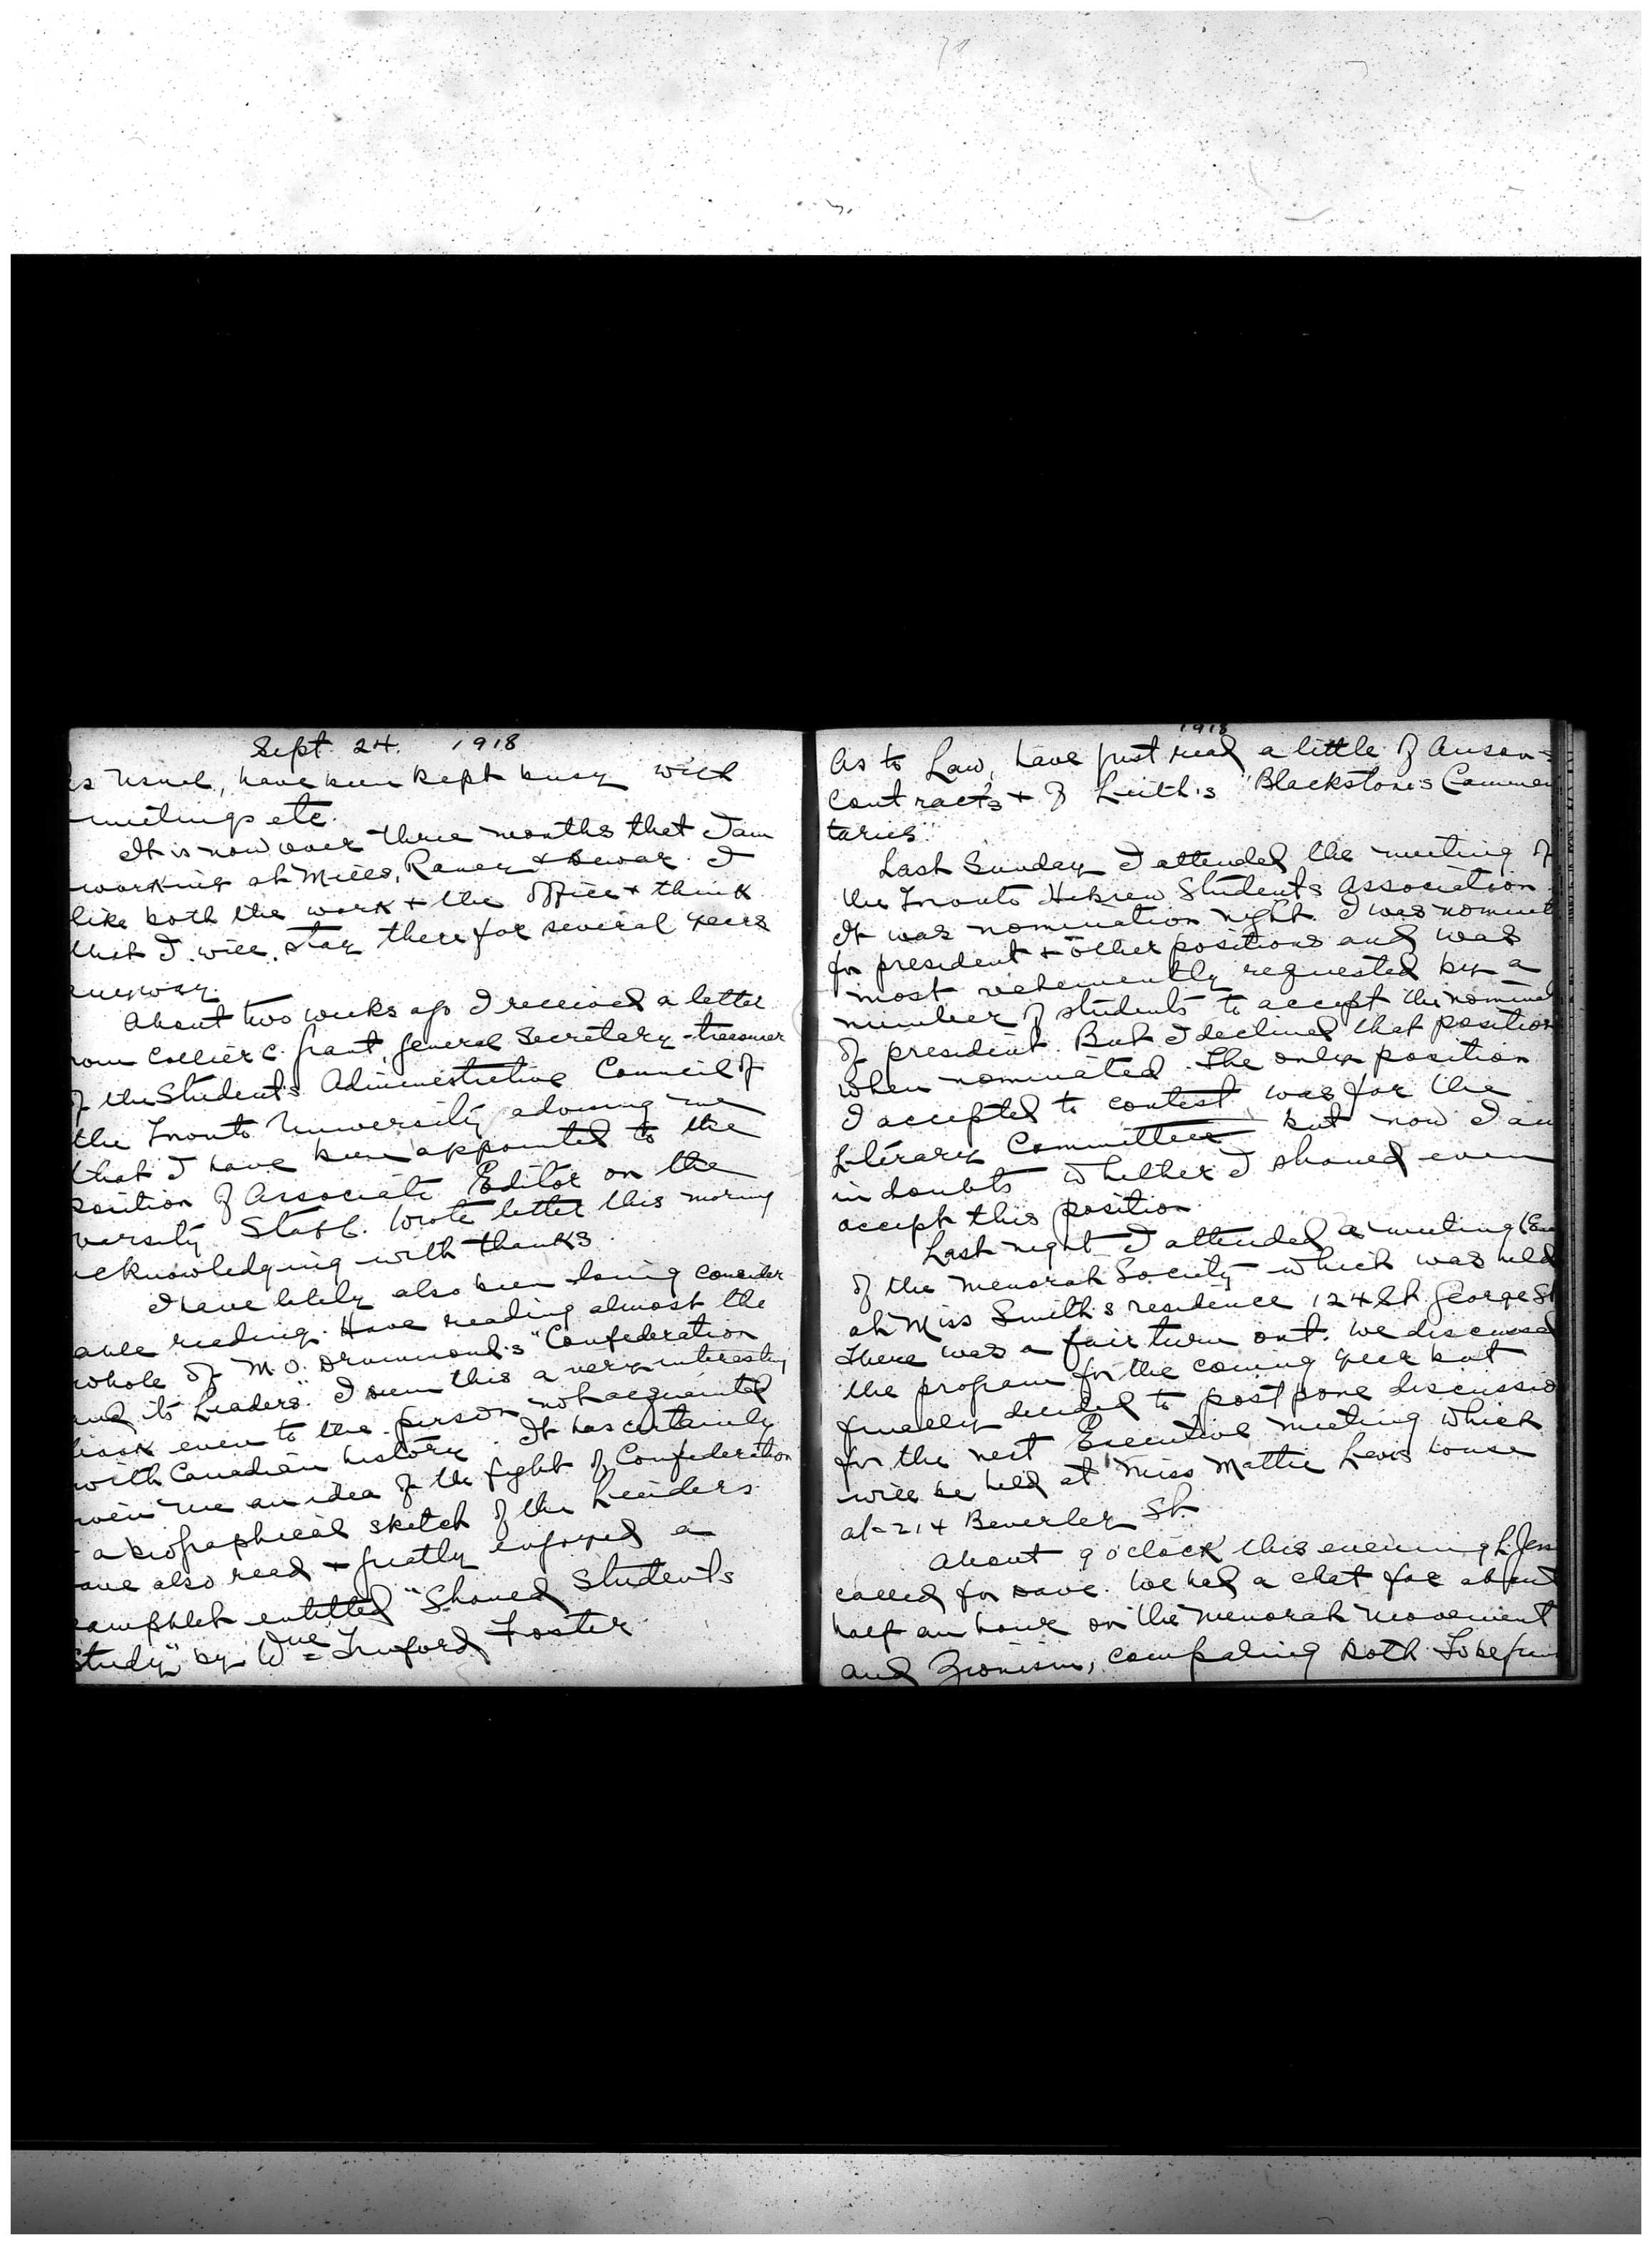 Sept. 24. 1918
s usual, have been kept busy with
meetings etc.
It is now over three months that I am
working at Mills, Raney & Dewar. I
like both the work & the office & think
that I will stay there for several years
anyway.
About two weeks ago I received a letter
rom Collier C. Grant, General Secretary-treasurer
of the Student's Administrative Council of
the Toronto University advising me
that I have been appointed to the
position of Associate Editor on the
varsity Staff. Wrote letter this morning
acknowledging with thanks.
I have lately also been doing consider
able reading. Have reading almost the
whole of M.O. Drummond's "Confederation
and its Leaders." I deem this a very interesting
book even to the person not acquainted
with Canadian history. It has certainly
iven me an idea of the fight of Confederation
a biographical sketch of the Leaders.
ave also read & greatly enjoyed a
pamphlet entitled "Should Students
Study" by Wm Truford Foster
1918
As to Law, have just read a little of Anson's
Contracts & of Leith's "Blackstone's Commen
taries".
Last Sunday I attended the meeting of
the Toronto Hebrew Students Association.
It was nomination night. I was nominat
for president & other positions and was
most vehemently requested by a
number of students to accept the nominat
of president. But I declined that position
when nominated. The only position
I accepted to contest was for the
Literary Committee but now I am
in doubts whether I should even
accept this position.
Last night I attended a meeting (Exe
of the Menorah Society which was held
at Miss Smith's residence 124 St. George St
There was a fair turn out. We discussed
the program for the coming year but
finally decided to postpone discussio
for the next Executive meeting which
will be held at Miss Mattie Levis house
at 214 Beverley St.
About 9 o'clock this evening L.
called for Dave. We had a chat for about
half an hour on the Menorah movement
and Zionism, comparing both. To